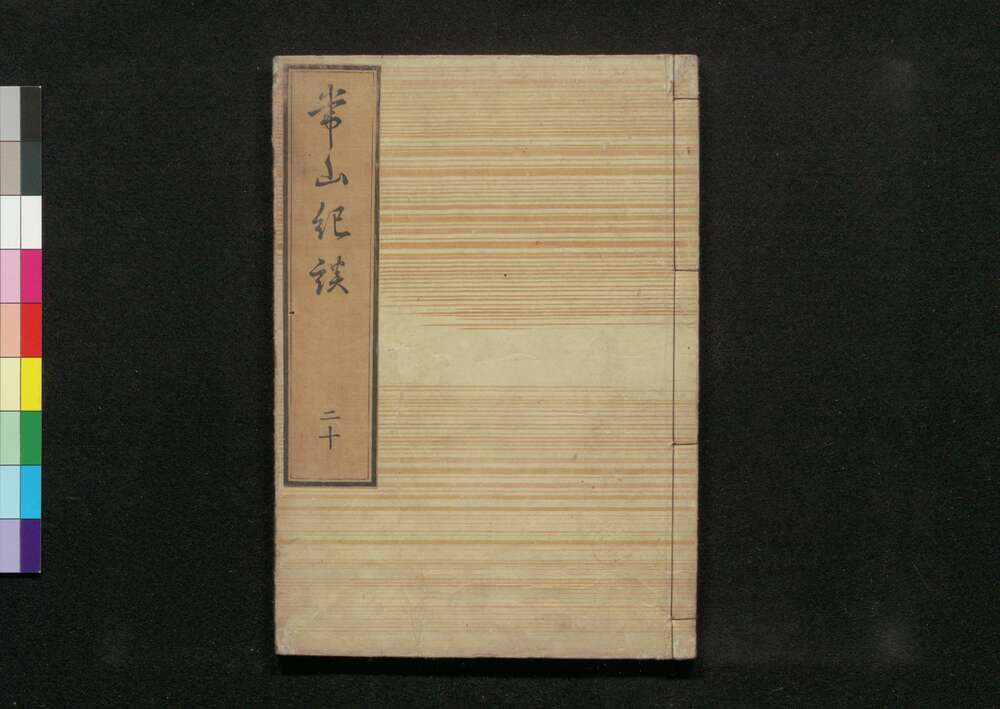 常山紀談
二十